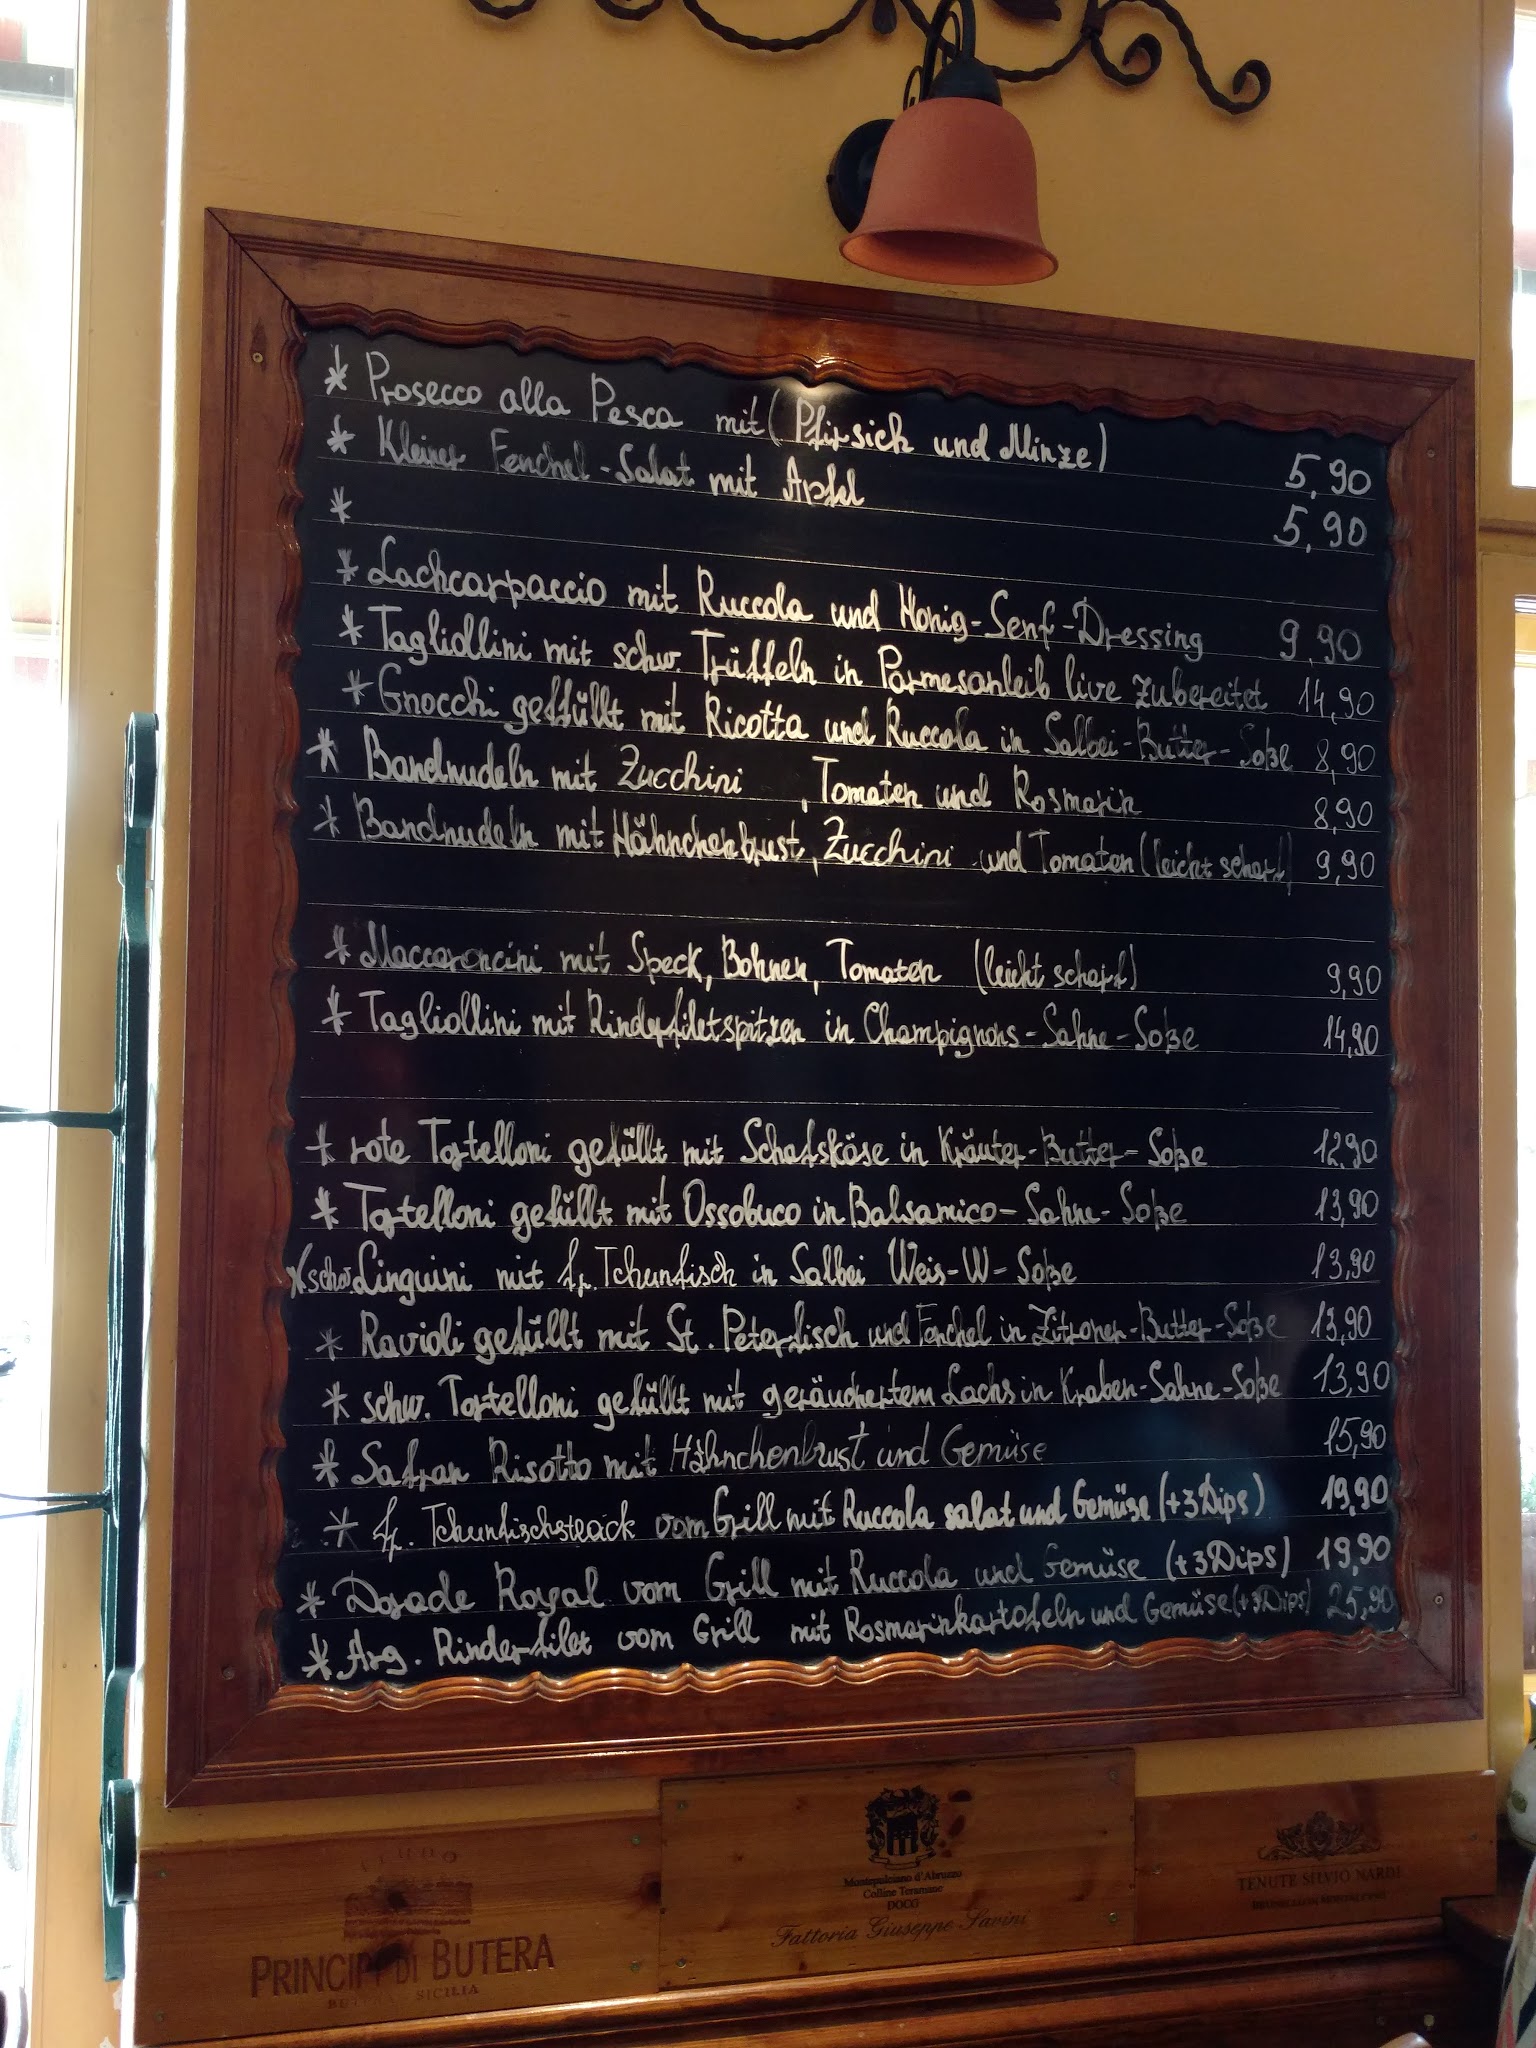 * Prosecco alla Pesca mit (Pfirsich und Minze) 5,90
* Kleiner Fenchel-Salat mit Apfel 5,90
*
* Lachcarpaccio mit Ruccola und Honig-Senf-Dressing 9,90
* Tagliollini mit schw. Trüffeln in Parmesanleib live zubereitet 14,90
* Gnocchi gefüllt mit Ricotta und Ruccola in Salbei-Butter-Soße 8,90
* Bandnudeln mit Zucchini , Tomaten und Rosmarin 8,90
* Bandnudeln mit Hähnchenbrust, Zucchini und Tomaten (leicht scharf) 9,90
* Maccaroncini mit Speck, Bohnen, Tomaten (leicht scharf) 9,90
* Tagliollini mit Rinderfiletspitzen in Champignons-Sahne-Soße 14,90
* rote Tortelloni gefüllt mit Schafskäse in Kräuter-Butter-Soße 12,90
* Tortelloni gefüllt mit Ossobuco in Balsamico-Sahne-Soße 13,90
* schw. Linguini mit fr. Tchunfisch in Salbei Weis-W-Soße 13,90
* Ravioli gefüllt mit St. Peterfisch und Fenchel in Zitronen-Butter-Soße 13,90
* schw. Tortelloni gefüllt mit geräuchertem Lachs in Kraben-Sahne-Soße 13,90
* Safran Risotto mit Hähnchenbrust und Gemüse 15,90
* fr. Tchunfischsteack vom Grill mit Ruccola salat und Gemüse (+3Dips) 19,90
* Dorade Royal vom Grill mit Ruccola und Gemüse (+3Dips) 19,90
* Arg. Rinderfilet vom Grill mit Rosmarinkartofeln und Gemüse (+3Dips) 25,90
FEUDO
PRINCIPI DI BUTERA
BUTERA SICILIA
Montepulciano d'Abruzzo
Colline Teramane
DOCG
Fattoria Giuseppe Savini
TENUTE SILVIO NARDI
BRUNELLO DI MONTALCINO